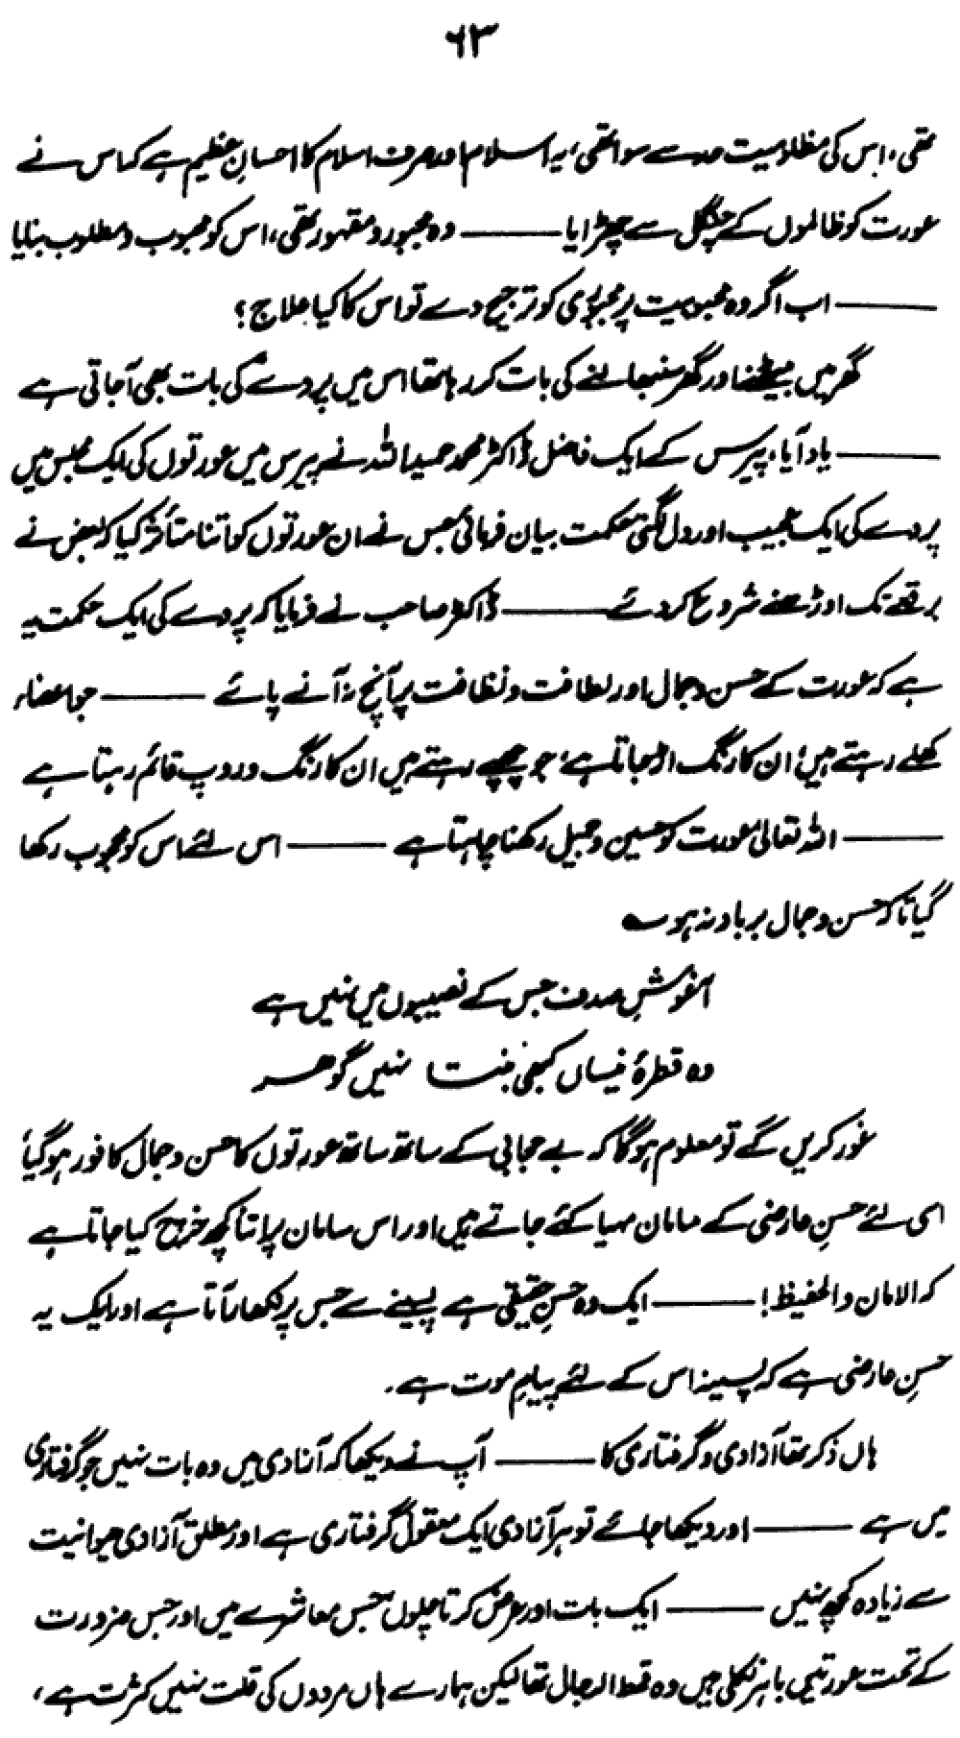 ۶۳
تھی، اس کی مظلومیت حد سے سوا تھی، یہ اسلام اور صرف اسلام کا احسانِ عظیم ہے کہ اس نے
عورت کو ظالموں کے چنگل سے چھڑایا ——— وہ مجبور و مقہور تھی، اس کو محبوب و مطلوب بنایا
——— اب اگر وہ محبوبیت پر مجبوری کو ترجیح دے تو اس کا کیا علاج؟
گھر میں بیٹھنے اور گھر سنبھالنے کی بات کر رہا تھا اس میں پردے کی بات بھی آجاتی ہے
——— یاد آیا، پیرس کے ایک فاضل ڈاکٹر محمد حمید اللہ نے پیرس میں عورتوں کی ایک مجلس میں
پردے کی ایک عجیب اور دل لگتی حکمت بیان فرمائی جس نے ان عورتوں کو اتنا متأثر کیا کہ بعض نے
برقعے تک اوڑھنے شروع کردئے ——— ڈاکٹر صاحب نے فرمایا کہ پردے کی ایک حکمت یہ
ہے کہ عورت کے حسن و جمال اور لطافت و نظافت پر آنچ نہ آنے پائے ——— جو اعضاء
کھلے رہتے ہیں، ان کا رنگ اڑ جاتا ہے، جو چھپے رہتے ہیں ان کا رنگ و روپ قائم رہتا ہے
——— اللہ تعالیٰ عورت کو حسین و جمیل رکھنا چاہتا ہے ——— اس لئے اس کو محجوب رکھا
گیا تا کہ حسن و جمال برباد نہ ہو ؎
آغوشِ صدف جس کے نصیبوں میں نہیں ہے
وہ قطرۂ نیساں کبھی بنتا نہیں گوہر
غور کریں گے تو معلوم ہوگا کہ بے حجابی کے ساتھ ساتھ عورتوں کا حسن و جمال کافور ہوگیا،
اسی لئے حسنِ عارضی کے سامان مہیا کئے جاتے ہیں اور اس سامان پر اتنا کچھ خرچ کیا جاتا ہے
کہ الامان والحفیظ! ——— ایک وہ حسنِ حقیقی ہے پسینے سے جس پر نکھار آتا ہے اور ایک یہ
حسنِ عارضی ہے کہ پسینہ اس کے لئے پیامِ موت ہے۔
ہاں ذکر تھا آزادی و گرفتاری کا ——— آپ نے دیکھا کہ آزادی میں وہ بات نہیں جو گرفتاری
میں ہے ——— اور دیکھا جائے تو ہر آزادی ایک معقول گرفتاری ہے اور مطلق آزادی حیوانیت
سے زیادہ کچھ نہیں ——— ایک بات اور عرض کرتا چلوں، جس معاشرے میں اور جس ضرورت
کے تحت عورتیں باہر نکلی ہیں وہ قحط الرجال تھا لیکن ہمارے ہاں مردوں کی قلت نہیں کثرت ہے،